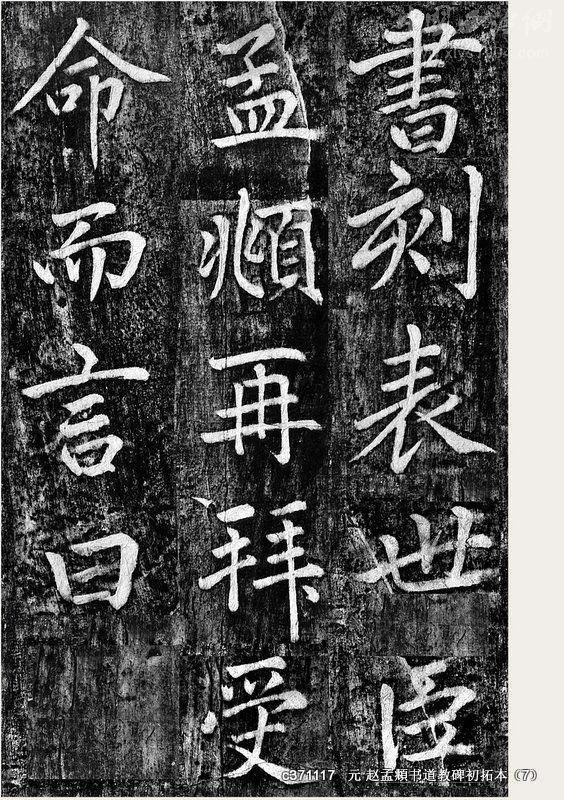 書刻表世臣
孟頫再拜受
命而言曰
c371117 元 赵孟頫书道教碑初拓本（7）